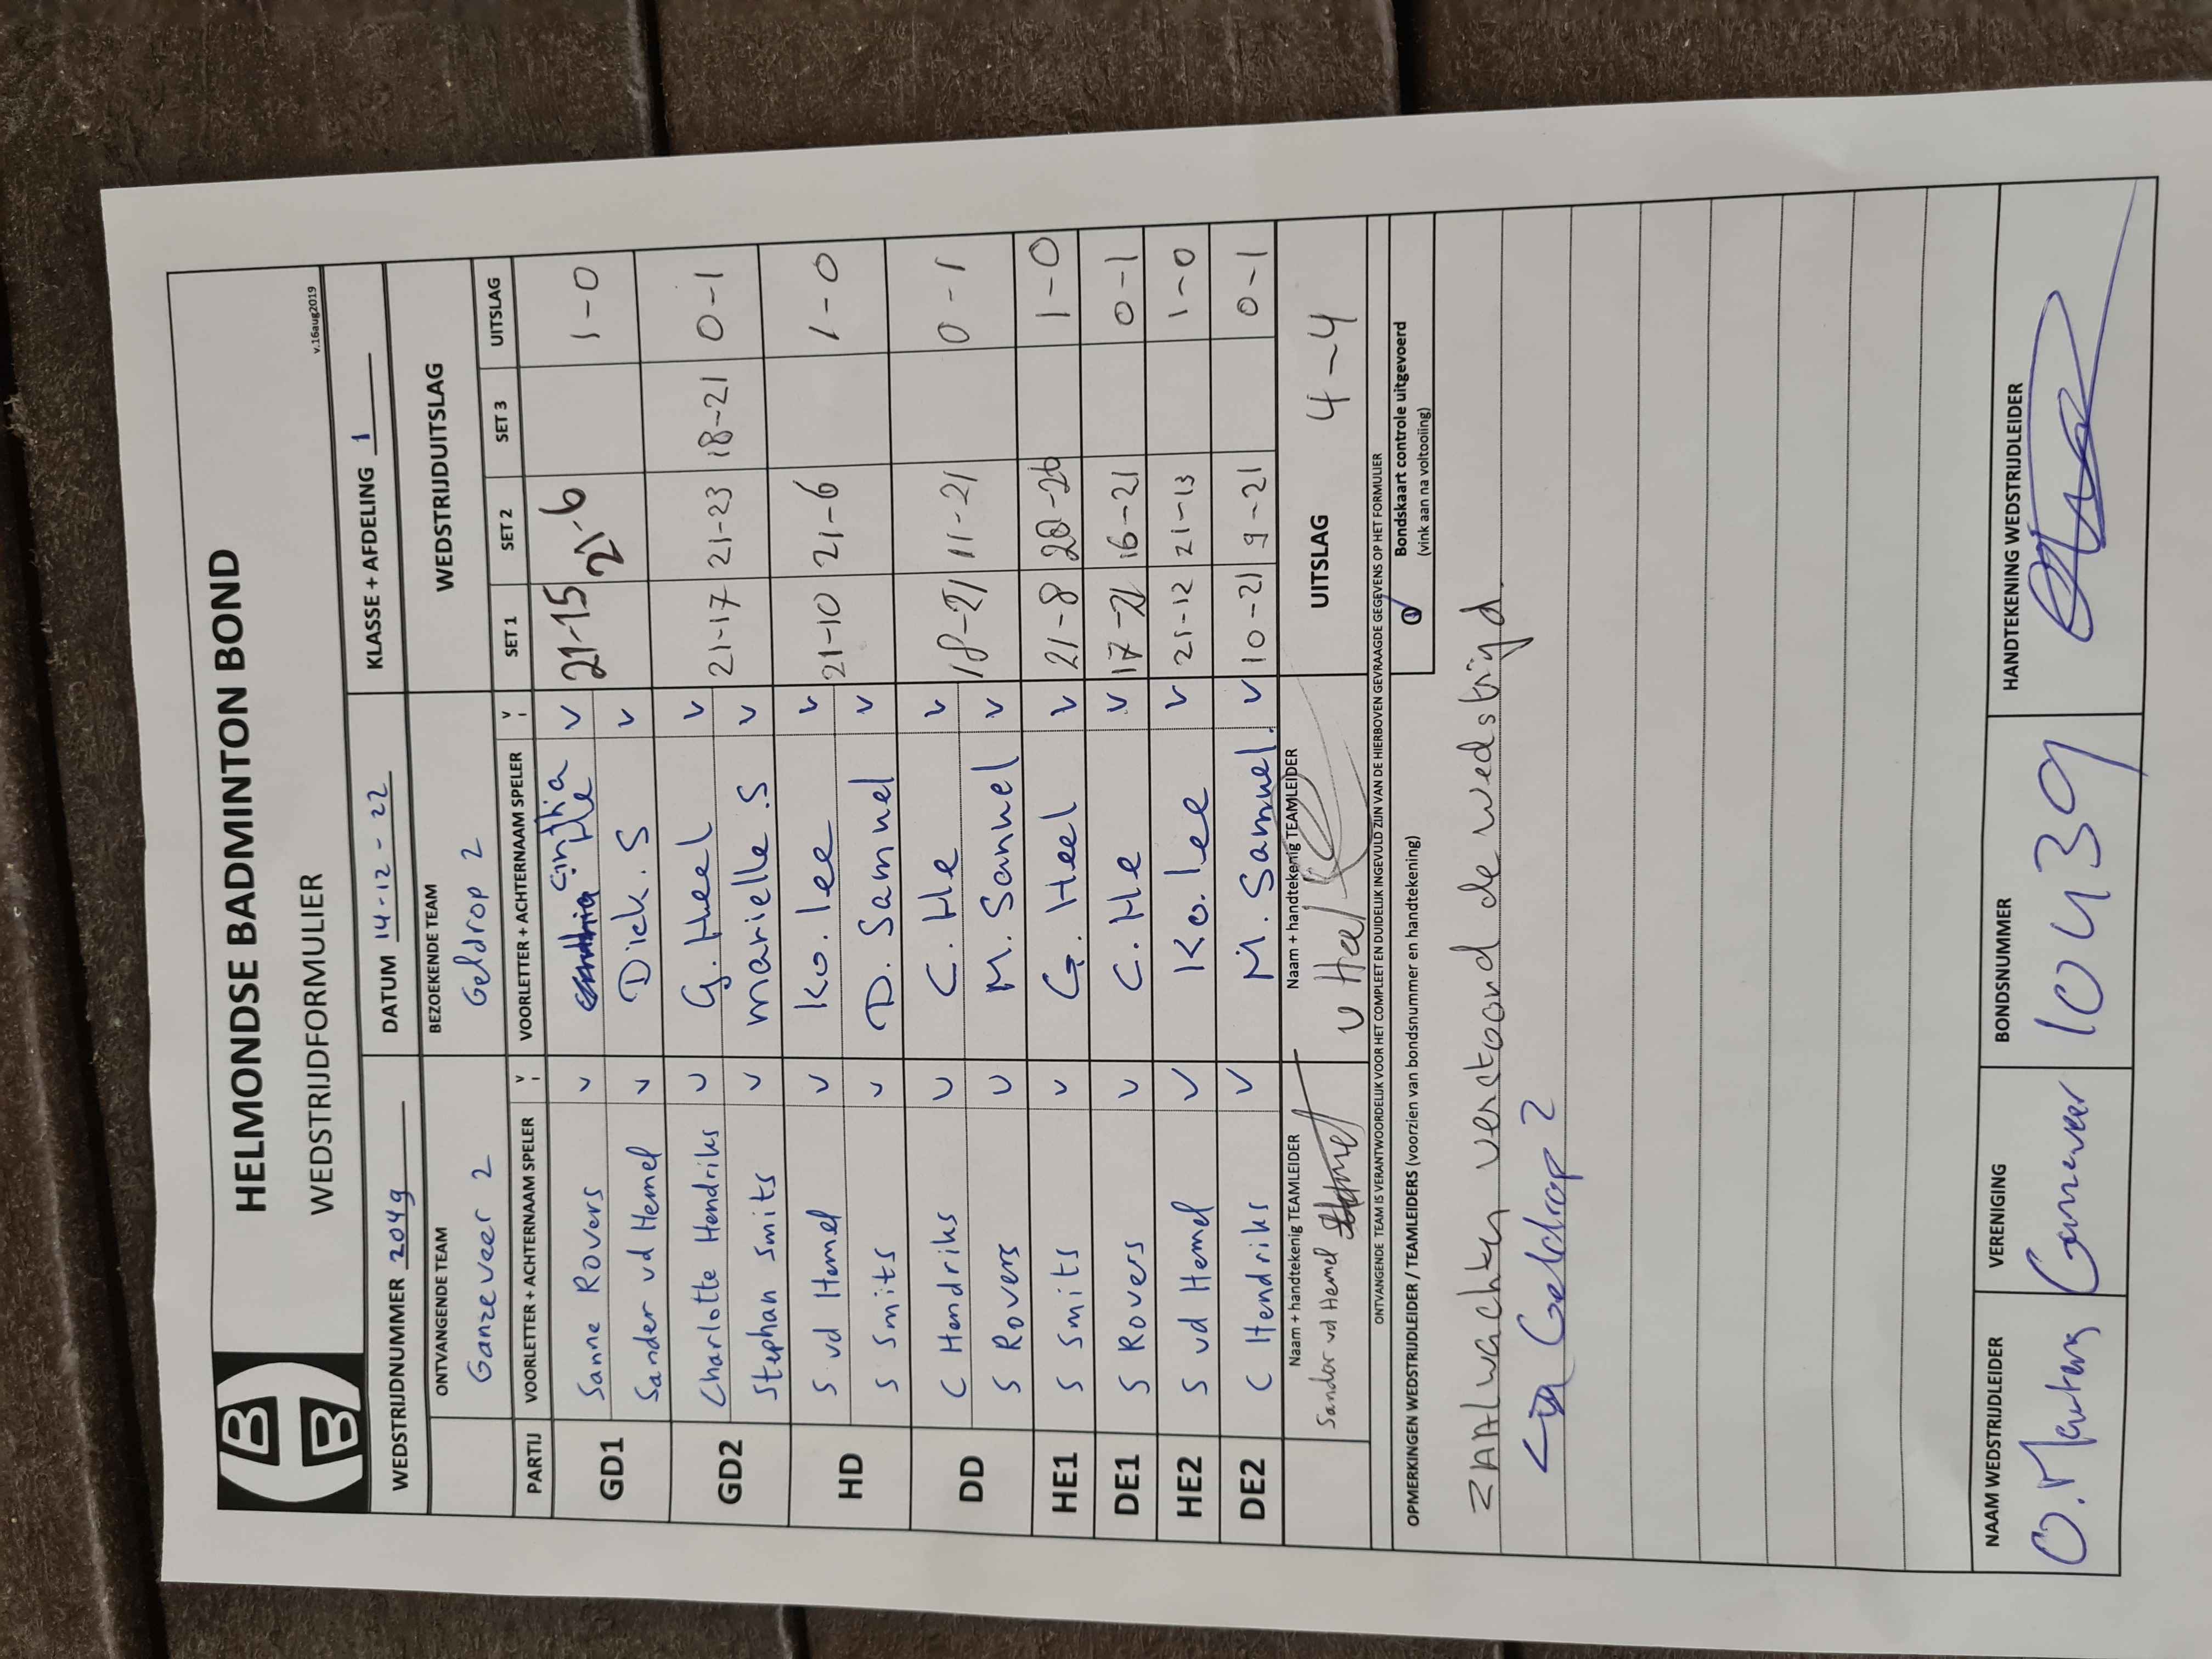 HELMONDSE BADMINTON BOND
WEDSTRIJDFORMULIER
v.16aug2019
WEDSTRIJDNUMMER 2049 DATUM 14-12-22 KLASSE + AFDELING 1
ONTVANGENDE TEAM BEZOEKENDE TEAM WEDSTRIJDUITSLAG
Ganzeveer 2 Geldrop 2
PARTIJ VOORLETTER + ACHTERNAAM SPELER V VOORLETTER + ACHTERNAAM SPELER V SET 1 SET 2 SET 3 UITSLAG
GD1 Sanne Rovers v Cinthia He v 21-15 21-6 1-0
Sander vd Hemel v Dick. S v
GD2 Charlotte Hendriks v G. Heel v 21-17 21-23 18-21 0-1
Stephan Smits v marielle .S v
HD S vd Hemel v Ko. lee v 21-10 21-6 1-0
S Smits v D. Samuel v
DD C Hendriks v C. He v 18-21 11-21 0-1
S Rovers v M. Samuel v
HE1 S Smits v G. Heel v 21-8 28-26 1-0
DE1 S Rovers v C. He v 17-21 16-21 0-1
HE2 S vd Hemel v Ko. lee v 21-12 21-13 1-0
DE2 C Hendriks v M. Samuel. v 10-21 9-21 0-1
Naam + handtekenig TEAMLEIDER Naam + handtekenig TEAMLEIDER UITSLAG 4-4
Sander vd Hemel
ONTVANGENDE TEAM IS VERANTWOORDELIJK VOOR HET COMPLEET EN DUIDELIJK INGEVULD ZIJN VAN DE HIERBOVEN GEVRAAGDE GEGEVENS OP HET FORMULIER
OPMERKINGEN WEDSTRIJDLEIDER / TEAMLEIDERS (voorzien van bondsnummer en handtekening)
Bondskaart controle uitgevoerd
(vink aan na voltooiing)
ZAALwachten verstoord de wedstrijd.
Geldrop 2
NAAM WEDSTRIJDLEIDER VERENIGING BONDSNUMMER HANDTEKENING WEDSTRIJDLEIDER
10439